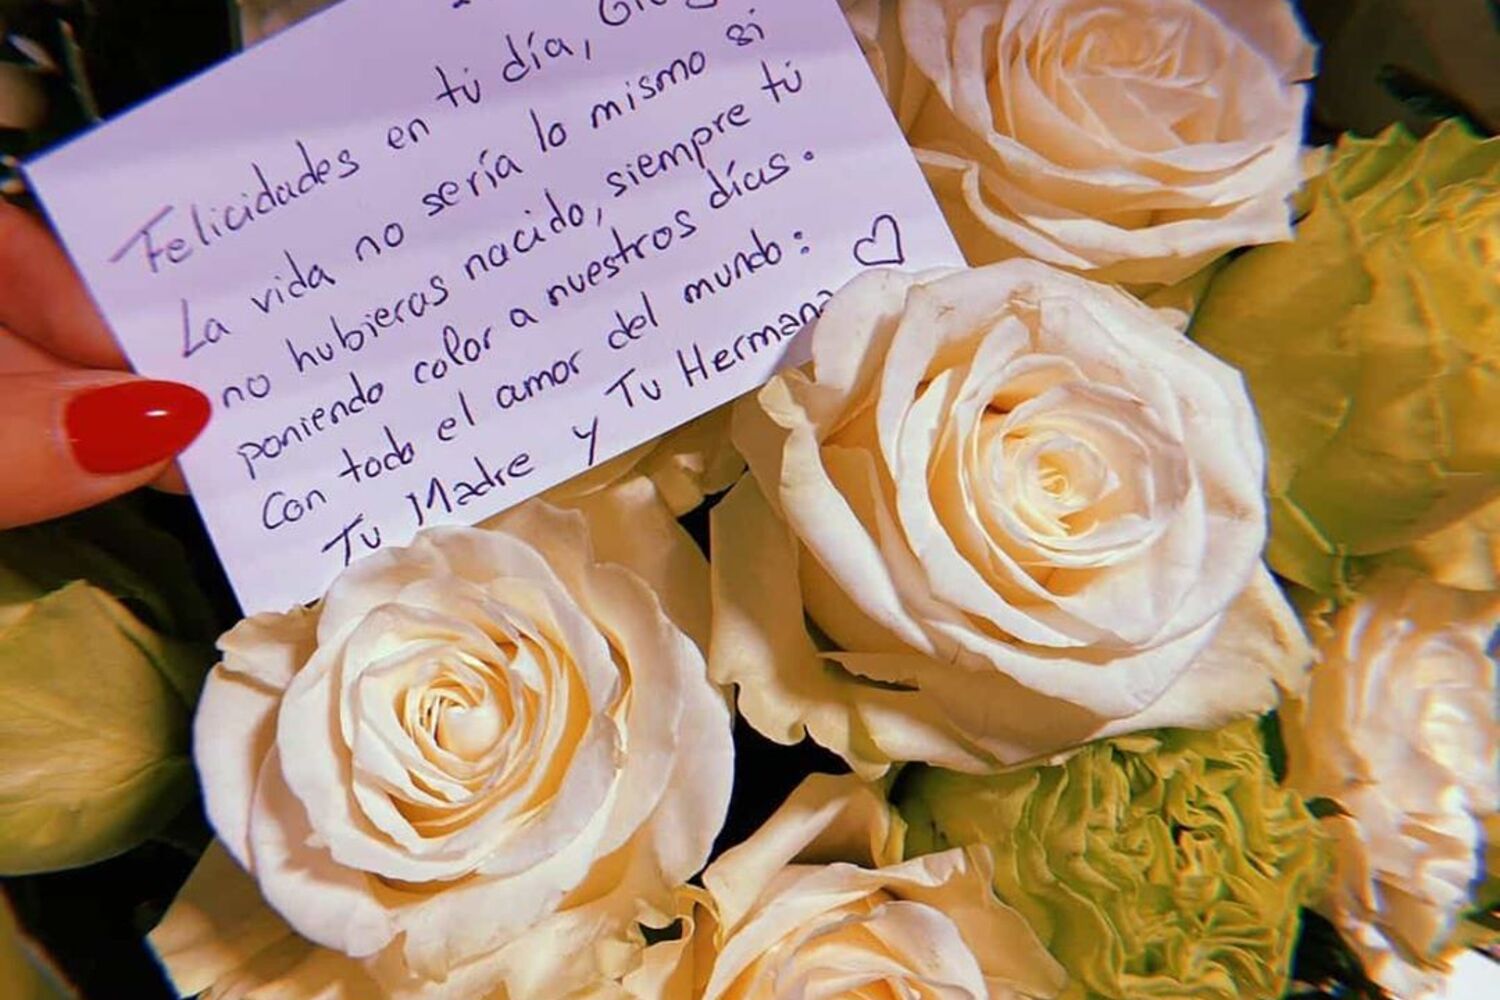 Felicidades en tú día,
La vida no sería lo mismo si
no hubieras nacido, siempre tú
poniendo color a nuestros días.
Con todo el amor del mundo:
Tu Madre y Tu Hermana